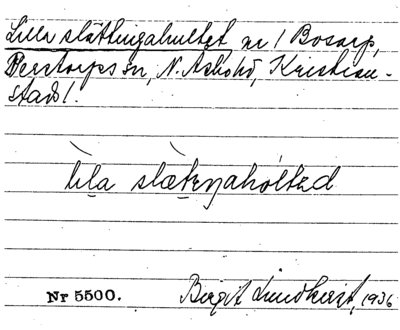 Lilla slättingahultet nr 1 Bosarp,
Perstorps sn, N. Åsbo hd, Kristian-
stads l.
lìla slæ̀teŋahòlted
Nr 5500.
Birgit Lindkvist, 1936